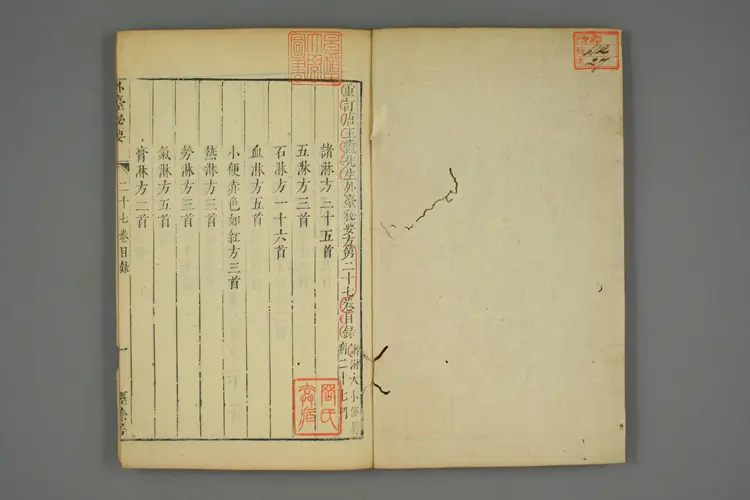 重訂唐王燾先生外臺秘要方第二十七卷目錄
諸淋大小便
病二十七門
諸淋方三十五首
五淋方三首
石淋方一十六首
血淋方五首
小便赤色如紅方三首
熱淋方三首
勞淋方三首
氣淋方五首
膏淋方二首
外臺秘要
二十七卷目錄
一
經餘居